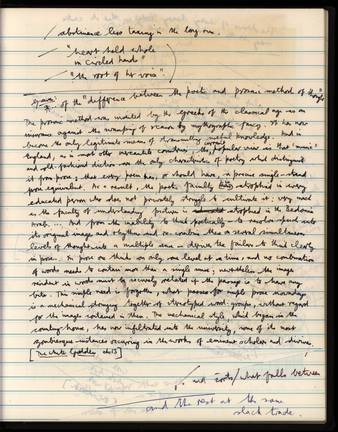 abstinence less taxing in the long run.
"heart held whole
in circled hands"
"the root of his voice".
of the "difference between the poetic and prosaic method of thought"
The prosaic method was invented by the Greeks of the Classical age as an
insurance against the swamping of reason by mythographic fancy. It has now
become the only legitimate means of transmitting useful knowledge. And in
England, as in most other mercantile countries, the popular view is that "music"
and old-fashioned diction are the only characteristics of poetry which distinguish
it from prose; that every poem has, or should have, a precise single-strand
prose equivalent. As a result, the poetic faculty is atrophied in every
educated person who does not privately struggle to cultivate it: very much
as the faculty of understanding pictures is atrophied in the Bedouin
Arab. ... And from the inability to think poetically – to resolve speech into
its original images and rhythms and re-combine these on several simultaneous
levels of thought into a multiple sense – derives the failure to think clearly
in prose. In prose one thinks on only one level at a time, and no combination
of words needs to contain more than a single sense; nevertheless the images
resident in words must be securely related if the passage is to have any
bite. This simple need is forgotten, what passes for simple prose nowadays
is a mechanical stringing together of stereotyped word-groups, without regard
for the images contained in them. The mechanical style, which began in the
counting-house, has now infiltrated into the university, some of its most
zombiesque instances occurring in the works of eminent scholars and divines.
[The White Goddess, ch 13]
and roots / what falls between
and the rest at the same
slack trade.